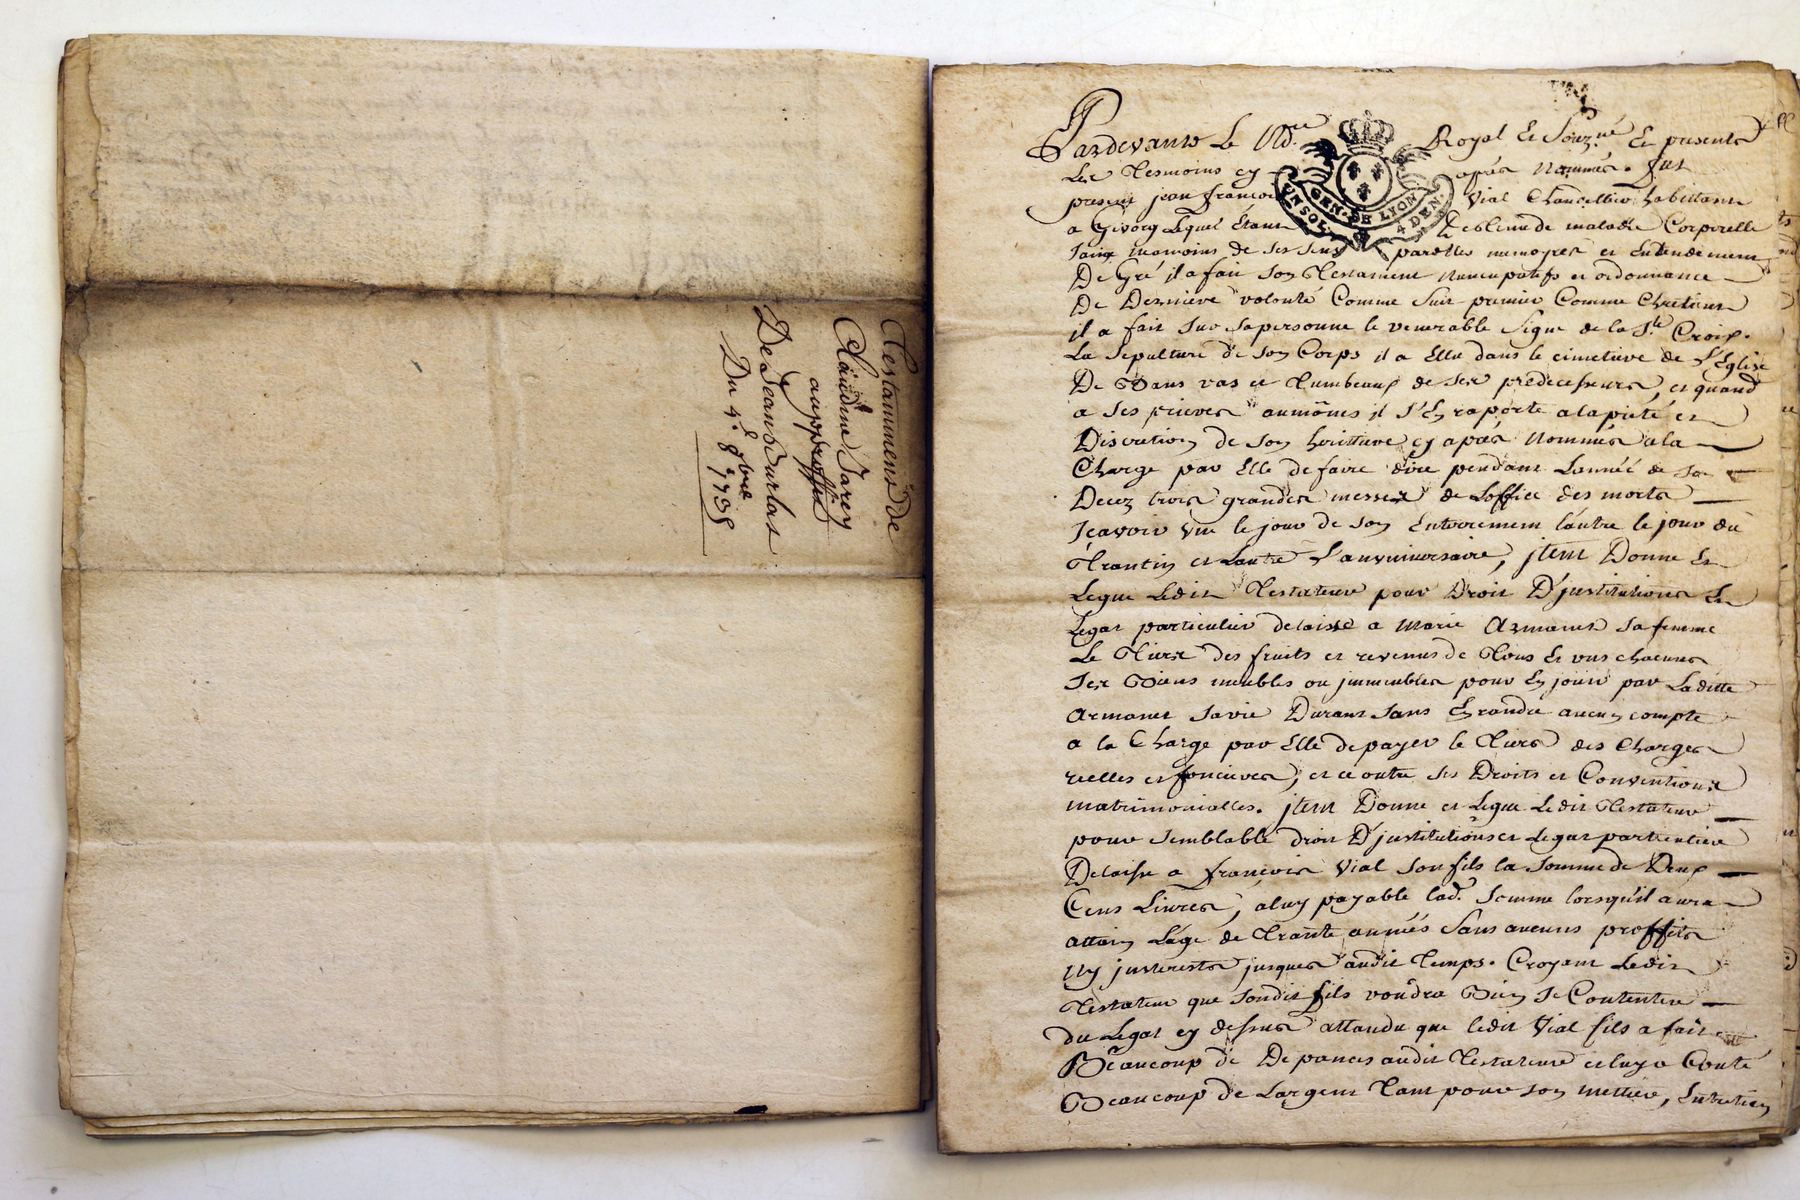 Testamment de
Claudine Jarey
au proffit
De Jean Burlat
Du 4e 8bre
1735
Pardevant Le No.re Royal Et Souz.né Et presents
Les Tesmoins cy après Nommés. fut
present jean françois Vial Chancellier habittant
a Givorg Lequel Étant Detenu de maladie Corporelle
Sain memoire de ses sens parolles memoyre et Entendement
De Gré il a fait son Testament nuncupatifs et ordonnance
De Derniere volonté Comme suit premier Comme Chretient
il a fait sur sa personne le venerable signe de la S.te Croix.
La sepulture de son Corps il a Ellu dans le cimetiere de L'Eglise
De Bans vas et Tumbeaux de ses predecesseurs, et quand
a ses prieres aumônes il S'En raporte a la pieté et
Discretion de son herittiere cy aprés Nommée a la
Charge par Elle de faire dire pendant L'année de son
Decez trois grandes messes de Loffice des morts
Sçavoir une le jour de son Enterrement l'autre le jour du
Trantin et Lautre L'anniversaire, jtem Donne Et
Legue Ledit Testateur pour Droit D'justitutions Et
Legat particulier delaissé a Marie Armanet sa femme
Le Tiers des fruits et revenus de Tous Et uns chacuns
Ses Biens meubles ou jmmeubles pour En jouir par Laditte
Armanet sa vie Durant sans En randre aucun compte
a la Charge par Elle de payer le Tiers des Charges
reelles et foncieres, et ce outre ses Droits et Conventions
matrimonialles. jtem Donne et Legue Ledit Testateur
pour semblable droit D'justitutions et Legat particulier
Delaissé a françois Vial son fils la somme de Deux
Cens Livres, a luy payable lad. somme lorsqu'il aura
attain L'age de Trante années Sans aucuns proffits
Ny jnterests jusques audit Temps. Croyant Ledit
Testateur que sondit fils voudra Bien se Contenter
du Legat cy dessus attandu que ledit Vial fils a fait
Beaucoup de Depances audit Testateur et luy a Couté
Beaucoup de Largent Tant pour son mettier, Entretien
GEN. DE LYON
UN SOL 4 DEN.